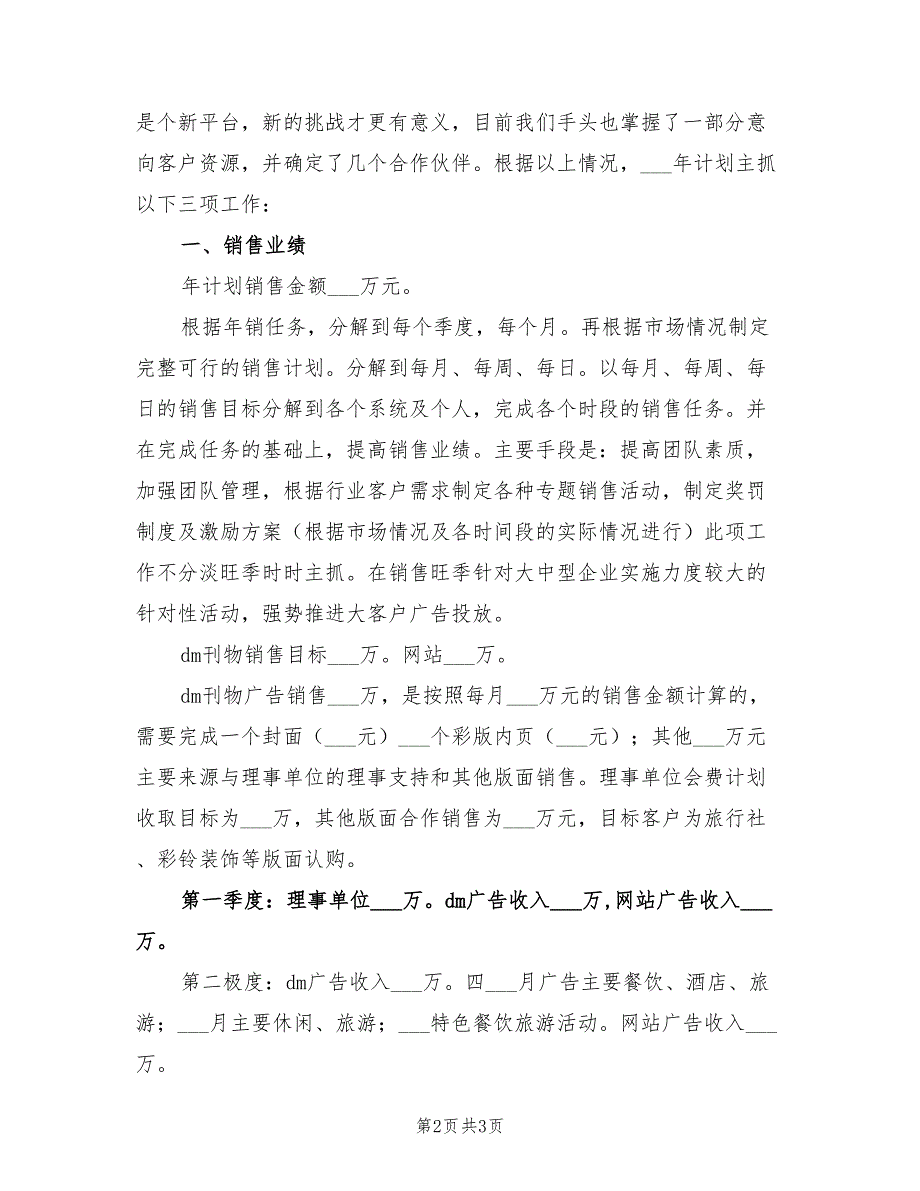 是个新平台，新的挑战才更有意义，目前我们手头也掌握了一部分意
向客户资源，并确定了几个合作伙伴。根据以上情况，___年计划主抓
以下三项工作：
一、销售业绩
年计划销售金额___万元。
根据年销任务，分解到每个季度，每个月。再根据市场情况制定
完整可行的销售计划。分解到每月、每周、每日。以每月、每周、每
日的销售目标分解到各个系统及个人，完成各个时段的销售任务。并
在完成任务的基础上，提高销售业绩。主要手段是：提高团队素质，
加强团队管理，根据行业客户需求制定各种专题销售活动，制定奖罚
制度及激励方案（根据市场情况及各时间段的实际情况进行）此项工
作不分淡旺季时时主抓。在销售旺季针对大中型企业实施力度较大的
针对性活动，强势推进大客户广告投放。
dm刊物销售目标___万。网站___万。
dm刊物广告销售___万，是按照每月___万元的销售金额计算的，
需要完成一个封面（___元）___个彩版内页（___元）；其他___万元
主要来源与理事单位的理事支持和其他版面销售。理事单位会费计划
收取目标为___万，其他版面合作销售为___万元，目标客户为旅行社
、彩铃装饰等版面认购。
第一季度：理事单位___万。dm广告收入___万,网站广告收入___
万。
第二极度：dm广告收入___万。四___月广告主要餐饮、酒店、旅
游；___月主要休闲、旅游；___特色餐饮旅游活动。网站广告收入___
万。
第2页 共3页